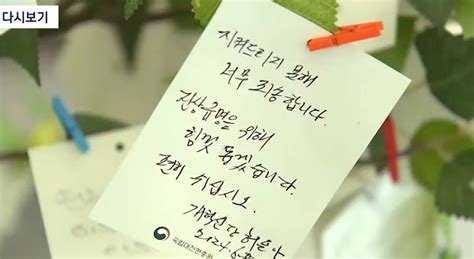 다시보기
지켜드리지 못해
너무 죄송합니다.
진상규명을 위해
힘껏 돕겠습니다.
편히 쉬십시오.
개혁신당 허은아
2024.
국립대전현충원